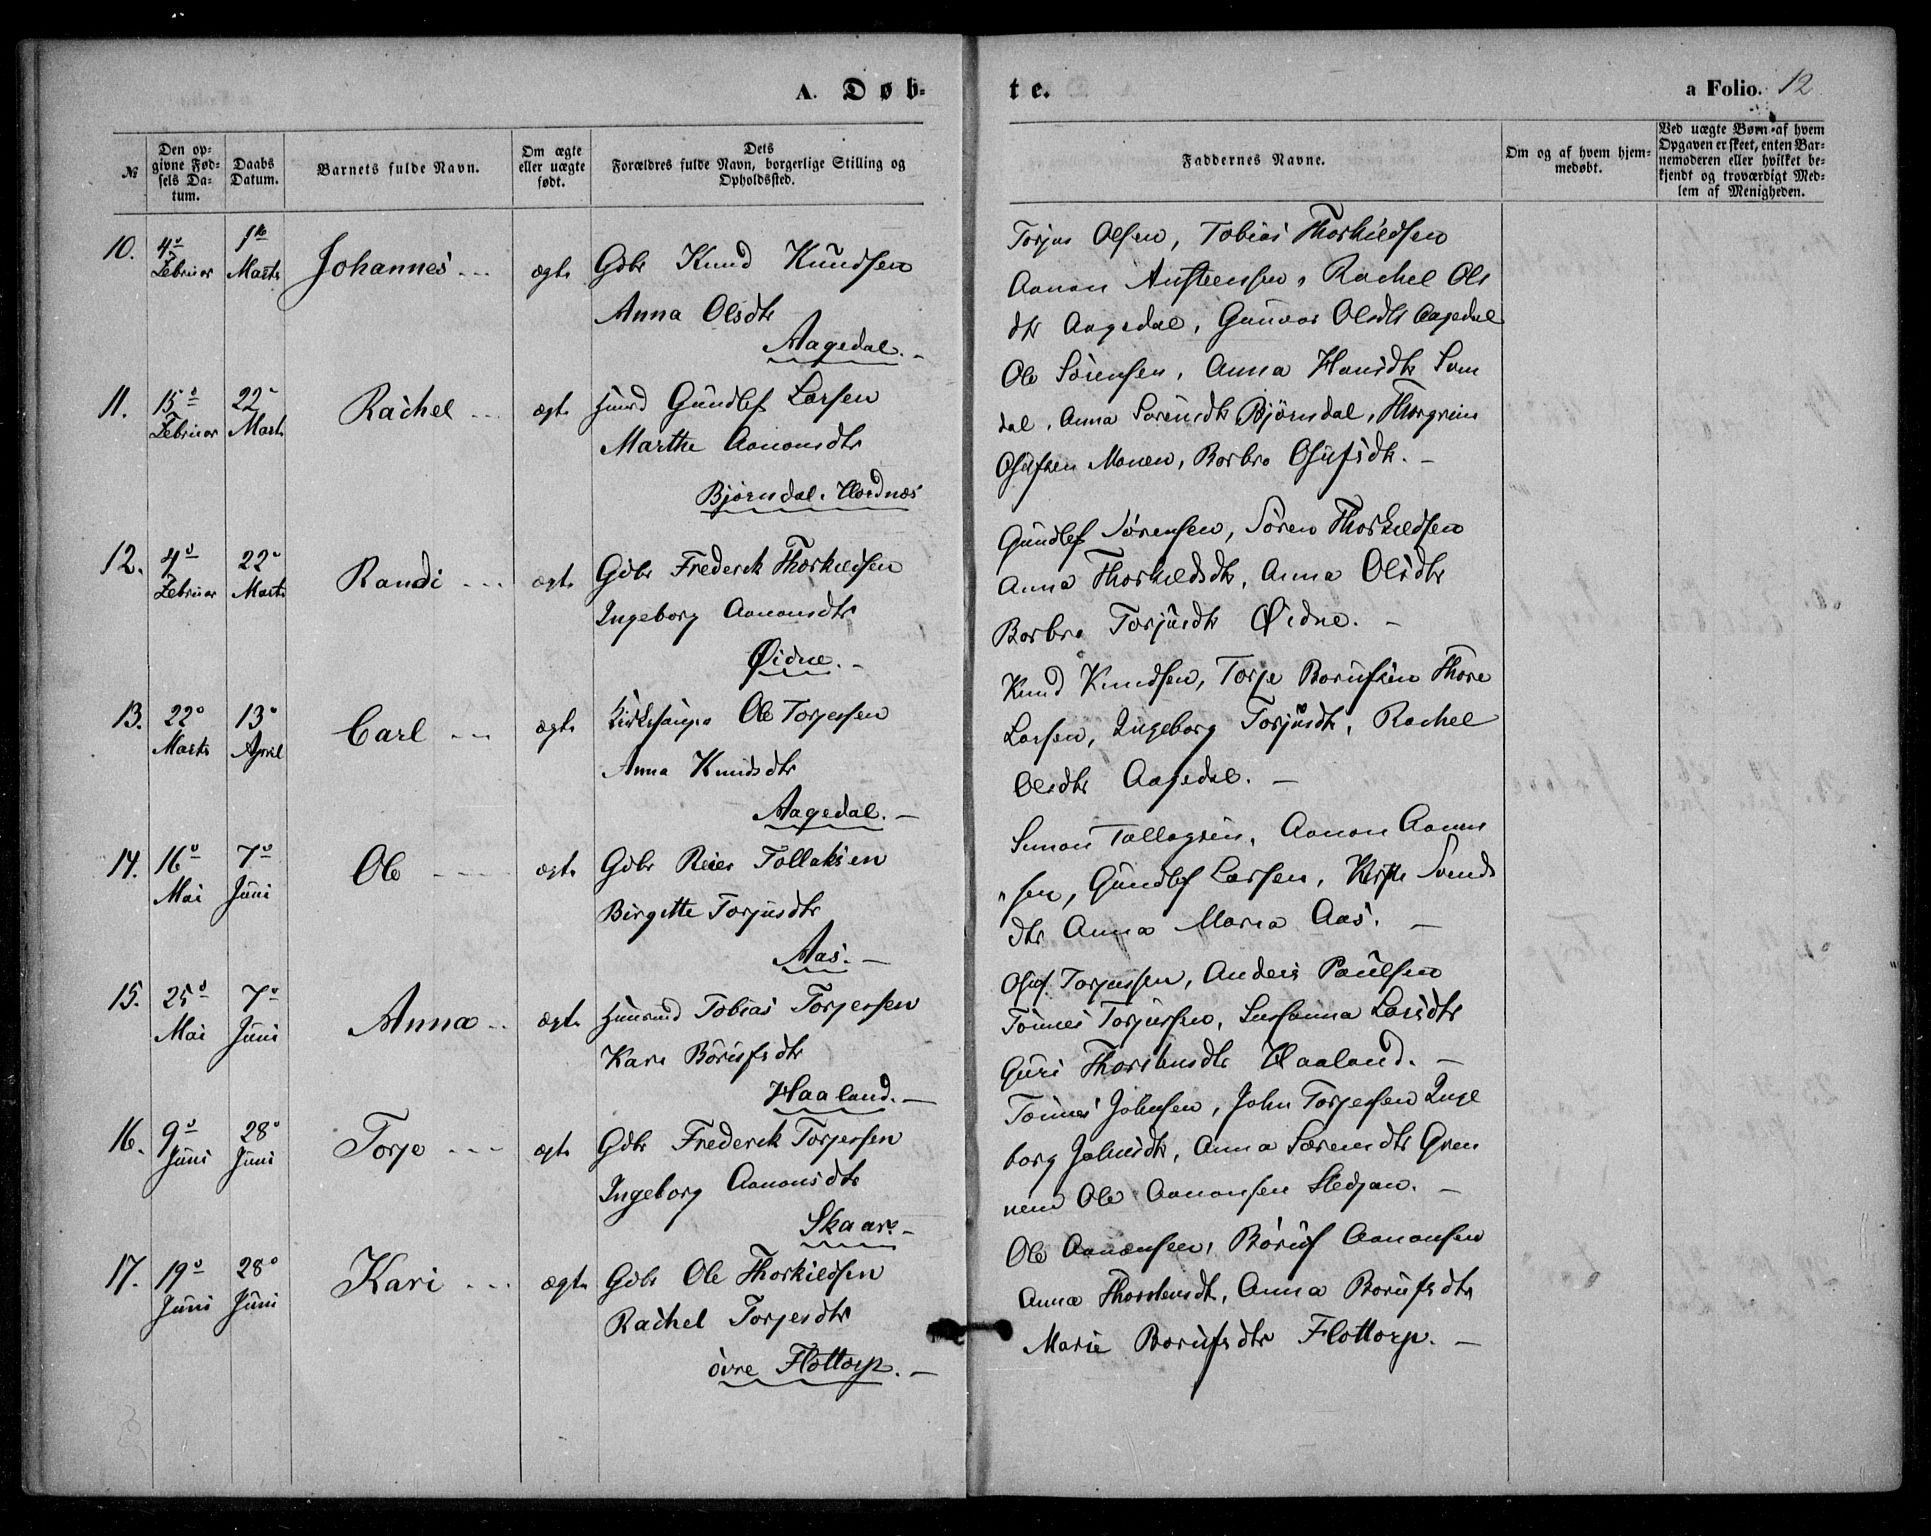 A. Døb-
te.
a Folio. 12
№
Den op-
givne Fød-
sels Da-
tum.
Daabs
Datum.
Barnets fulde Navn.
Om ægte
eller uægte
født.
Dets
Forældres fulde Navn, borgerlige Stilling og
Opholdssted.
Faddernes Navne.
Om og af hvem hjem-
medøbt.
Ved uægte Børn af hvem
Opgaven er skeet, enten Bar-
nemoderen eller hvilket be-
kjendt og troværdigt Med-
lem af Menigheden.
10. 4de Februar 1ste Marts Johannes ægte Gbr Knud Knudsen
Anna Olsdtr
Aagedal.
Torjus Olsen, Tobias Thorkildsen
Aanon Austeensen, Rachel Ols
dtr Aagedal, Gunvor Olsdtr Aagedal
11. 15de Februar 22de Marts Rachel ægte Huusmd Gundlef Larsen
Marthe Aanonsdtr
Bjørndal. Hordnæs
Ole Sørensen, Anna Hansdtr Svin
dal, Anna Sørensdtr Bjørndal, Thorgrim
Osufsen Monen, Borbro Osufsdtr.
12. 4de Februar 22de Marts Randi ægte Gbr Frederek Thorkildsen
Ingeborg Aanonsdtr
Øidne.
Gundlef Sørensen, Søren Thorkildsen
Anna Thorkildsdtr, Anna Olsdtr
Borbro Torjusdtr Øidne.
13. 22de Marts 13de April Carl ægte Kirkesanger Ole Torjessen
Anna Knudsdtr
Aagedal.
Knud Knudsen, Torje Borufsen Thore
Larsen, Ingeborg Torjusdtr, Rachel
Olsdtr Aagedal.
14. 16de Mai 7de Juni Ole ægte Gbr Reier Tollaksen
Birgitte Torjusdtr
Aas.
Simon Tollagsen, Aanon Aanon
sen, Gundlef Larsen, Kirste Svends
dtr Anna Maria Aas.
15. 25de Mai 7de Juni Anna ægte Huusmd Tobias Torjessen
Kari Børufsdtr
Haaland.
Osuf Torjussen, Anders Paulsen
Tønnes Torjussen, Susanna Larsdtr
Guri Thorstensdtr Haaland.
16. 9de Juni 28de Juni Torje ægte Gbr Frederek Torjessen
Ingeborg Aanonsdtr
Skaar.
Tønnes Johnsen, John Torjessen Inge
borg Johnsdtr, Anna Sørensdtr Gren
nem Ole Aanonsen Stedjan.
17. 19de Juni 28de Juni Kari ægte Gbr Ole Thorkildsen
Rachel Torjesdtr
øvre Flottorp.
Ole Aanonsen, Børuf Aanonsen
Anna Thorstensdt, Anna Borufsdtr
Marie Borufsdtr Flottorp.